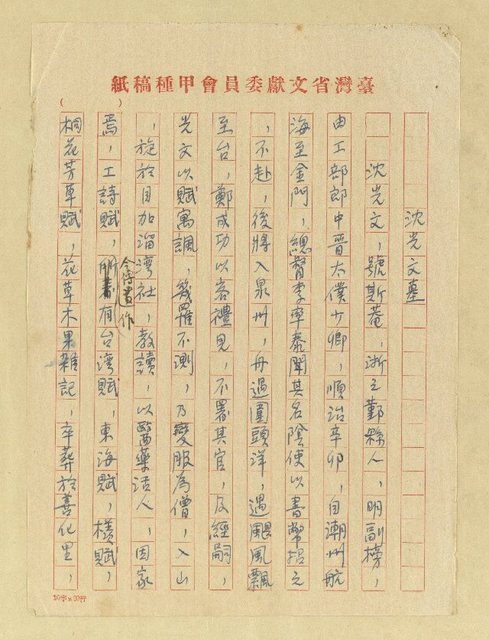 臺灣省文獻委員會甲種稿紙
沈光文墓
沈光文，號斯菴，浙之鄞縣人，明副榜，
由工部郎中晋太僕少卿，順治辛卯，自潮州航
海至金門，總督李率泰聞其名陰使以書幣招之
，不赴，後將入泉州，舟過圍頭洋，遇颶風飄
至台，鄭成功以客禮見，不署其官，及經嗣，
光文以賦寓諷，幾罹不測，乃變服為僧，入山
，旋於目加溜湾社，教讀，以醫藥活人，因家
今傳遺作
焉，工詩賦，所著有台湾賦，東海賦，檨賦，
桐花芳草賦，花草木果雜記，卒葬於善化里，